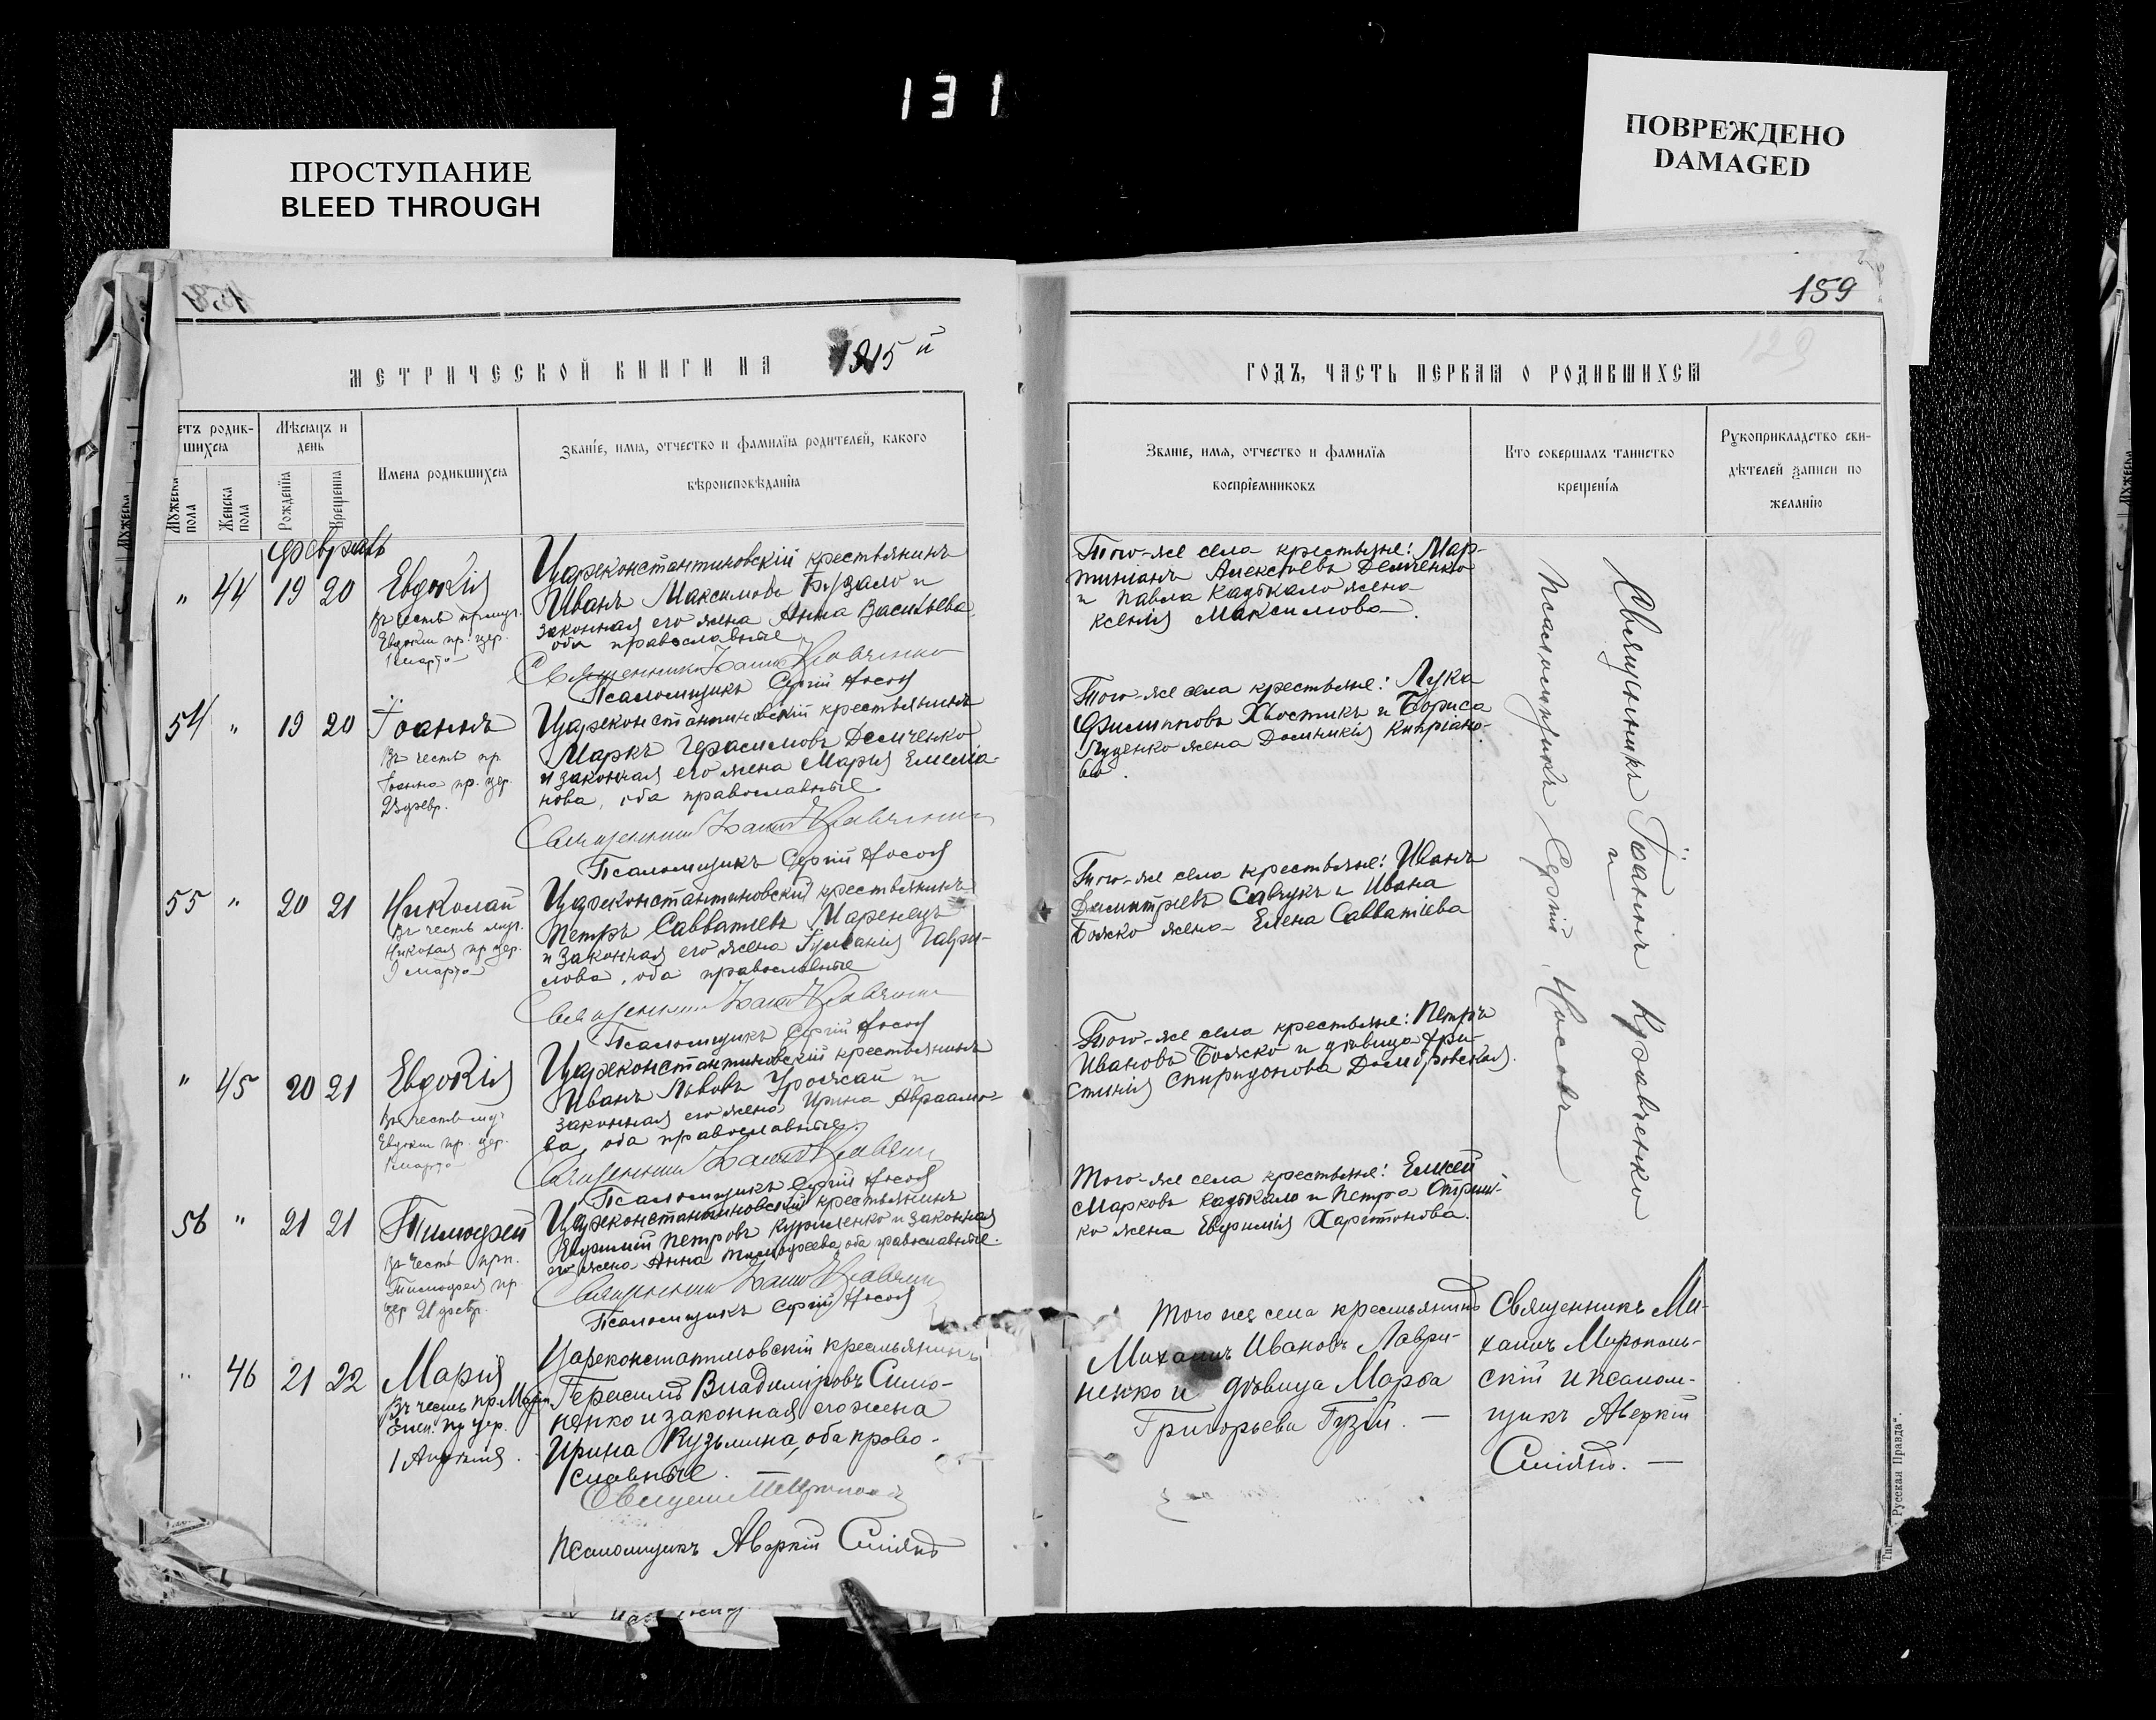 131
ПРОСТУПАНИЕ
BLEED THROUGH
ПОВРЕЖДЕНО
DAMAGED
159
МЕТРИЧЕСКОЙ КНИГИ НА 1915 й
ГОДЪ, ЧАСТЬ ПЕРВАЯ О РОДИВШИХСЯ
етъ родив-
шихся
Мужеска пола
Женска пола
Мѣсяцъ и
день
Рожденїя
Крещенїя
Имена родившихся
Званїе, имя, отчество и фамилїя родителей, какого
вѣроисповѣданїя
Званїе, имя, отчество и фамилїя
воспрїемниковъ
Кто совершалъ таинство
крещенїя
Рукоприкладство сви-
дѣтелей записи по
желанїю
февраль
" 44 19 20
Евдокія
Въ честь
Евдокіи пр. цер.
1 марта
Цареконстантиновскій крестьянинъ
Иванъ Максимовъ Бузало и
законная его жена Анна Васильева
оба православные
Священникъ Іоаннъ Кравченко
Псаломщикъ Сергій Носовъ
Того-же села крестьяне: Мар-
тиніанъ Алексѣевъ Демченко
и Павла Кадькало жена
Ксенія Максимова.
54 " 19 20
Іоаннъ
Въ честь пр.
Іоанна пр. цер.
февр.
Цареконстантиновскій крестьянинъ
Маркъ Герасимовъ Демченко
и законная его жена Марія Емелiа-
нова, оба православные.
Священникъ Іоаннъ Кравченко
Псаломщикъ Сергій Носовъ
Того-же села крестьяне: Лука
Филипповъ Хвостикъ и Бориса
Луценко жена Домникія Кипріано-
ва.
55 " 20 21
Николай
Въ честь муч.
Николая пр цер.
9 марта
Цареконстантиновскій крестьянинъ
Петръ Савватіевъ Маренецъ
и законная его жена Іуліанія Гаври-
лова, оба православные
Священникъ Іоаннъ Кравченко
Псаломщикъ Сергій Носовъ
Того-же села крестьяне: Иванъ
Димитріевъ Савчукъ и Ивана
Божко жена Елена Савватіева
" 45 20 21
Евдокія
Въ честь му
Евдокіи пр. цер.
1 марта
Цареконстантиновскій крестьянинъ
Иванъ Львовъ Урожай и
законная его жена Ирина Авраамо-
ва, оба православные.
Священникъ Іоаннъ Кравченко
Псаломщикъ Сергій Носовъ
Того-же села крестьяне: Петръ
Ивановъ Божко и дѣвица Хри-
стинія Спиридонова Домбровская.
56 " 21 21
Тимофей
Въ честь прп.
Тимофея пр
цер 21 февр.
Цареконстантиновскій крестьянинъ
Евфимій Петровъ Куриленко и законная
его жена Анна Тимофеева, оба православные.
Священникъ Іоаннъ Кравченко
Псаломщикъ Сергій Носовъ
Того-же села крестьяне:
Марковъ Кадькало и Петра
ко жена Евфимія Харитонова.
Священникъ Іоаннъ Кравченко
и
Псаломщикъ Сергій Носовъ
" 46 21 22
Марія
Въ честь пр. Маріи
Егип. пр цер.
1 Апрѣля.
Цареконстантиновскій крестьянинъ
Герасимъ Владиміровъ Симо-
ненко и законная его жена
Ирина Кузьмина, оба право-
славные.
Псаломщикъ Аверкій Сміянъ
Того же села крестьянинъ
Михаилъ Ивановъ Лаври-
ненко и дѣвица Марфа
Григорьева Гузій. —
Священникъ Ми-
хаилъ Мирополь-
скій и псалом-
щикъ Аверкій
Сміянъ. —
Русская Правда".